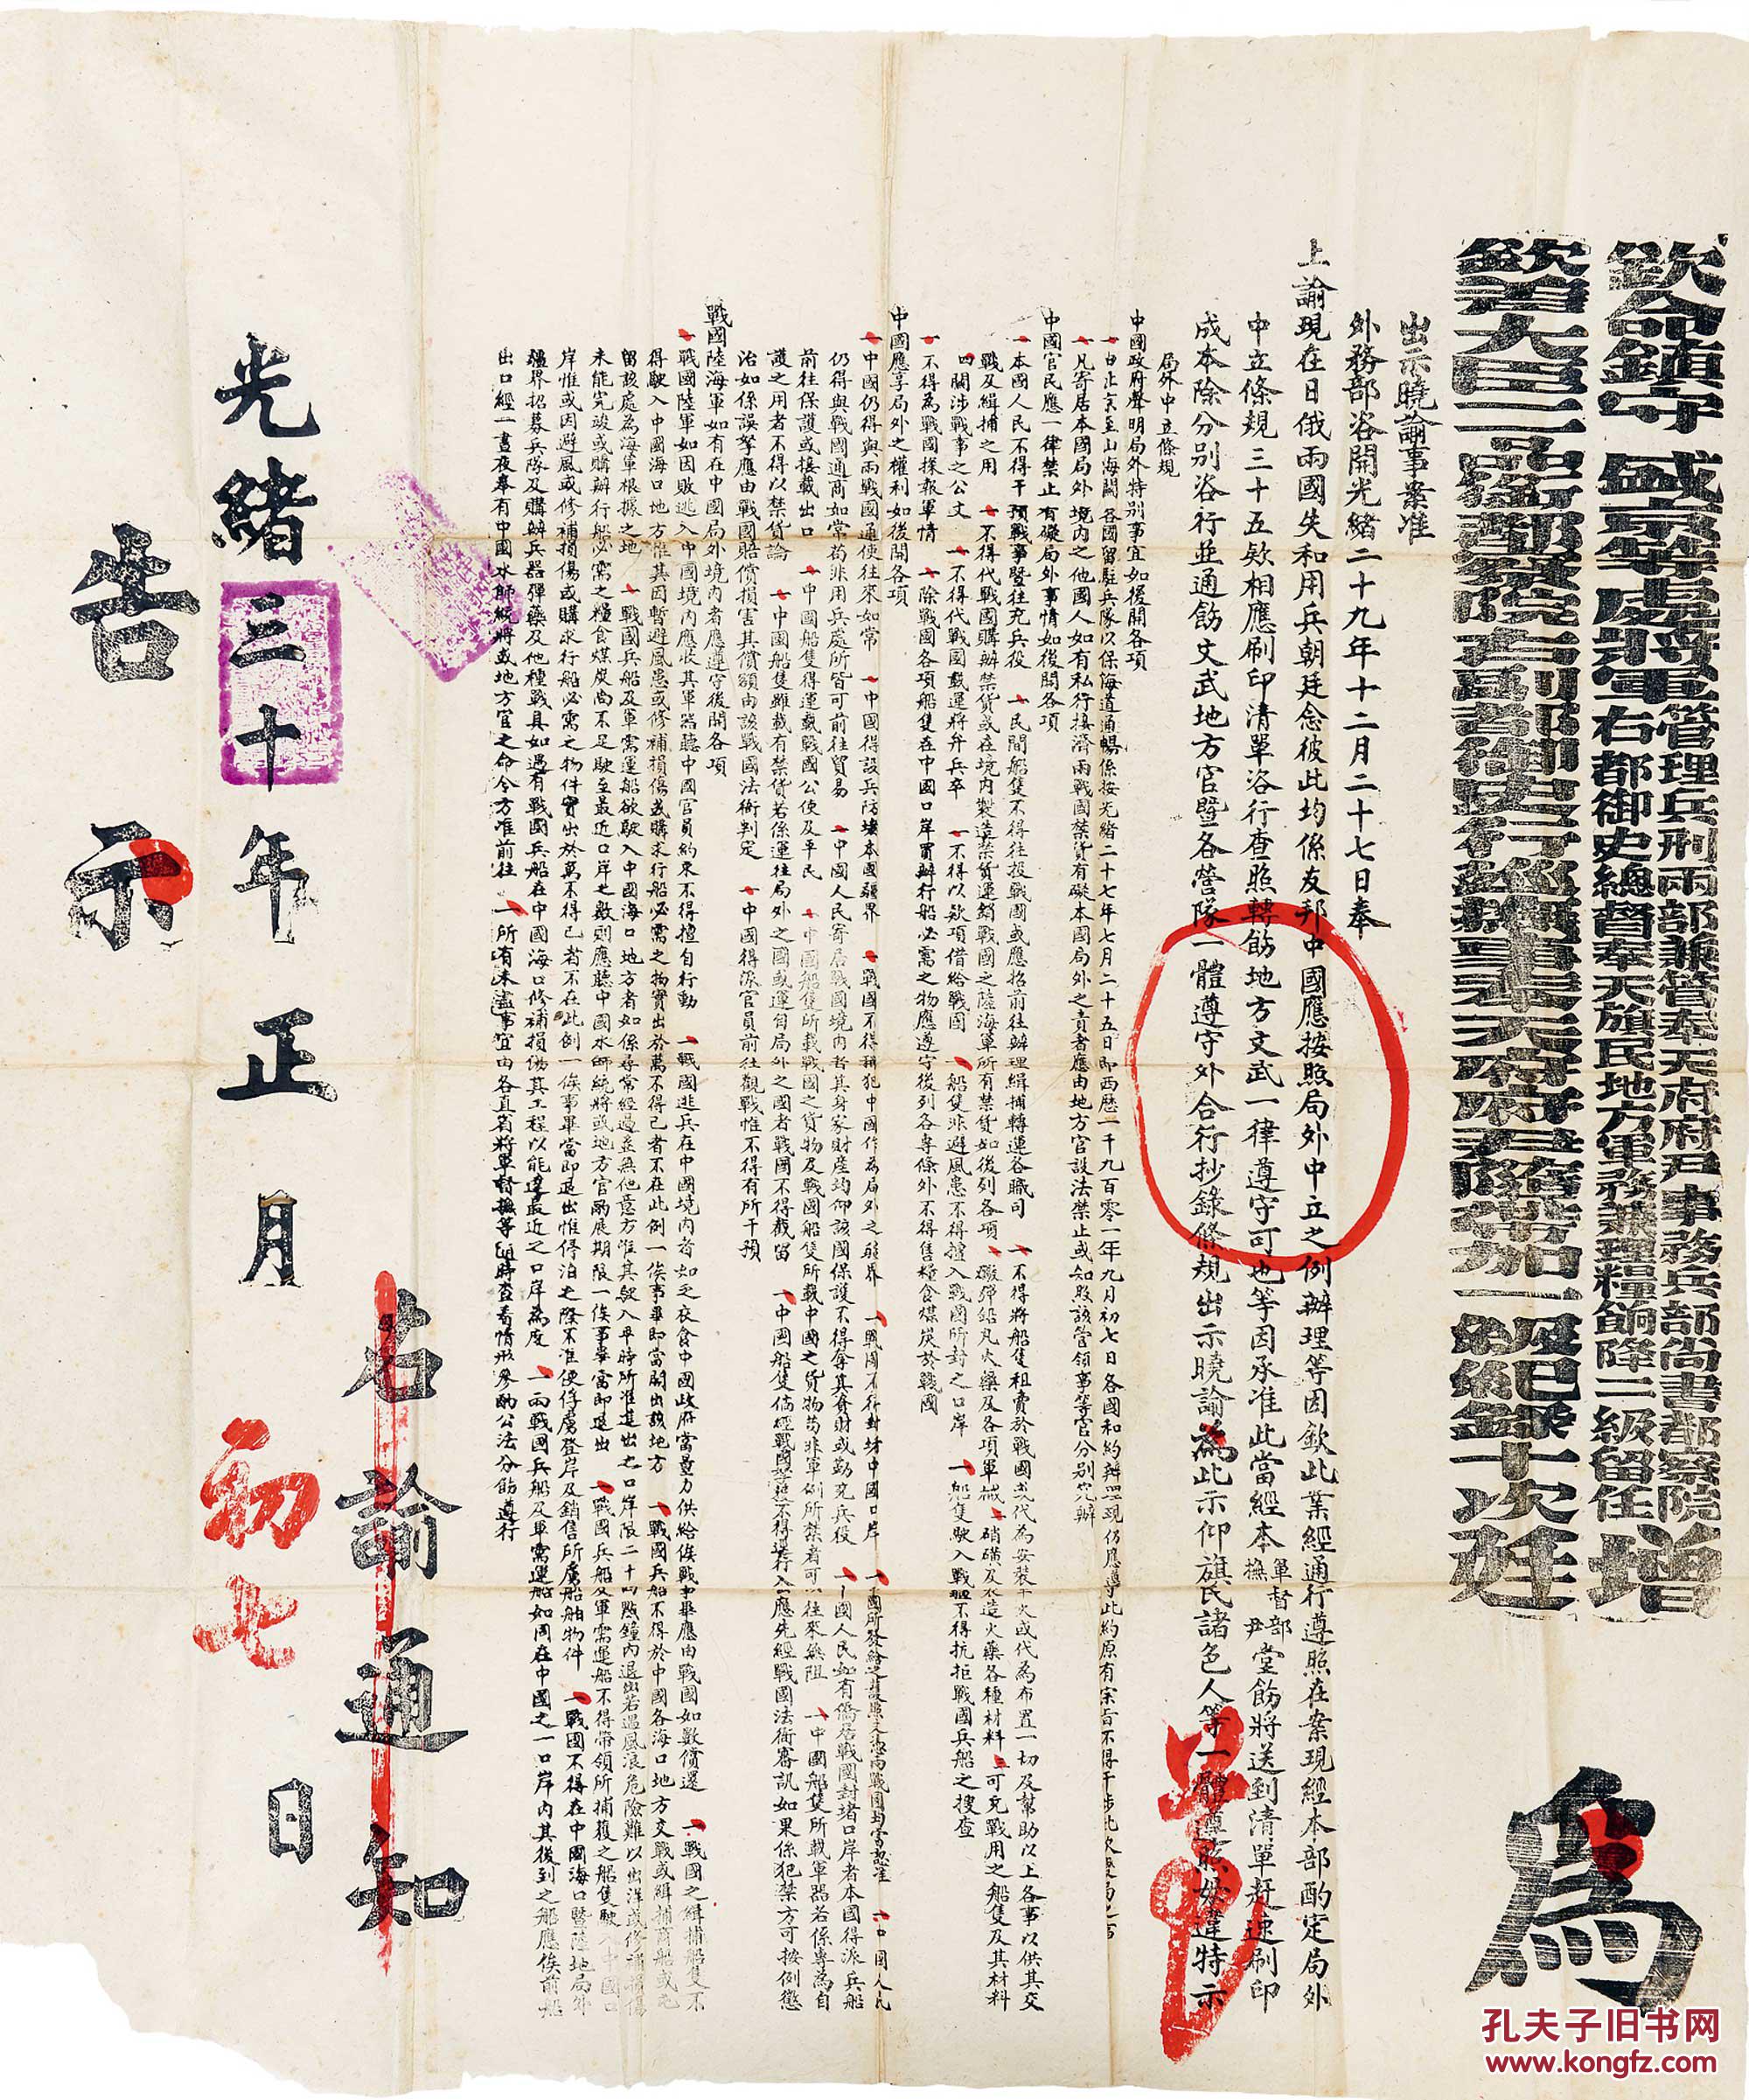 欽命鎮守盛京等處將軍管理兵刑兩部兼管奉天府府尹事務兵部尚書都察院右都御史總督奉天旗民地方軍務兼理糧餉降二級留任增
欽差大臣二品銜都察院右副都御史行巡撫事奉天府府尹隨帶加一級紀錄十次廷
為
出示曉諭事案准
外務部咨開光緒二十九年十二月二十七日奉
上諭現在日俄兩國失和用兵朝廷念彼此均係友邦中國應按照局外中立之例辦理等因欽此業經通行遵照在案現經本部酌定局外
中立條規三十五欵相應刷印清單咨行查照轉飭地方文武一律遵守可也等因承准此當經本軍督部撫尹堂飭將送到清單赶速刷印
成本除分別咨行並通飭文武地方官暨各營隊一體遵守外合行抄錄條規出示曉諭為此示仰旗民諸色人等一體遵照毋違特示
局外中立條規
中國政府聲明局外特別事宜如後開各項
一由北京至山海關各國留駐兵隊以保海道通暢係按光緒二十七年七月二十五日即西歷一千九百零一年九月初七日各國和約辦理現仍應遵守此約原有宗旨不得干涉此次變局之事
一凡寄居本國局外境內之他國人如有私行接濟兩戰國禁貨有礙本國局外之責者應由地方官設法禁止或知照該管領事等官分別究辦
中國官民應一律禁止有礙局外事情如後開各項
一本國人民不得干預戰事暨往充兵役 一民間船隻不得往投戰國或應招前往辦理緝捕轉運各職司 一不得將船隻租賣於戰國或代為安裝軍火或代為布置一切及幫助以上各事以供其交
戰及緝捕之用 一不得代戰國購辦禁貨或在境內製造禁貨運銷戰國之陸海軍所有禁貨如後列各項 一礮彈鉛丸火藥及各項軍械 二硝磺及製造火藥各種材料 三可充戰用之船隻及其材料
四關涉戰事之公文 一不得代戰國載運將弁兵卒 一不得以欵項借給戰國 一船隻非避風患不得擅入戰國所封之口岸 一船隻駛入戰疆不得抗拒戰國兵船之搜查
一不得為戰國探報軍情 一除戰國各項船隻在中國口岸買辦行船必需之物應遵守後列各專條外不得售糧食煤炭於戰國
中國應享局外之權利如後開各項
一中國仍得與兩戰國通使往來如常 一中國得設兵防堵本國疆界 一戰國不得稱犯中國作為局外之疆界 一戰國不得封堵中國口岸 一中國所發給之護照文憑兩戰國均當認准 一中國人民
仍得與戰國通商如常苟非用兵處所皆可前往貿易 一中國人民寄居戰國境內者其身家財產均仰該國保護不得奪其貲財或勒充兵役 一中國人民如有僑居戰國封堵口岸者本國得派兵船
前往保護或接載出口 一中國船隻得運載戰國公使及平民 一中國船隻所載戰國之貨物及戰國船隻所載中國之貨物苟非軍例所禁者可以往來無阻 一中國船隻所載軍器若係專為自
護之用者不得以禁貨論 一中國船隻雖載有禁貨若係運往局外之國或運自局外之國者戰國不得截留 一中國船隻倘經戰國拏獲不得逕行入口應先經戰國法衙審訊如果係犯禁方可按例懲
治如係誤拏應由戰國賠償損害其償額由該戰國法衙判定 一中國得派官員前往觀戰惟不得有所干預
戰國陸海軍如有在中國局外境內者應遵守後開各項
一戰國陸軍如因敗逃入中國境內應收其軍器聽中國官員約束不得擅自行動 一戰國逃兵在中國境內者如乏衣食中國政府當量力供給俟戰事畢應由戰國如數償還 一戰國之緝捕船隻不
得駛入中國海口地方惟其因暫避風患或修補損傷或購求行船必需之物實出於萬不得已者不在此例一俟事畢即當開出該地方 一戰國兵船不得於中國各海口地方交戰或緝捕商船或屯
留該處為海軍根據之地 一戰國兵船及軍需運船欲駛入中國海口地方者如係尋常經過並無他意方准其駛入平時所准進出之口岸限二十四點鐘內退出若遇風浪危險難以出洋或修補損傷
未能完竣或購辦行船必需之糧食煤炭尚不足駛至最近口岸之數則應聽中國水師統將或地方官酌展期限一俟事畢當即退出 一戰國兵船及軍需運船不得帶領所捕獲之船隻駛入中國口
岸惟或因避風或修補損傷或購求行船必需之物件實出於萬不得已者不在此例一俟事畢當即退出惟停泊之際不准使俘虜登岸及銷售所虜船舶物件 一戰國不得在中國海口暨陸地局外
疆界招募兵隊及購辦兵器彈藥及他種戰具如遇有戰國兵船在中國海口修補損傷其工程以能達最近之口岸為度 一兩戰國兵船及軍需運船如同在中國之一口岸內其後到之船應俟前船
出口經一晝夜奉有中國水師統將或地方官之命令方准前往 一所有未盡事宜由各直省將軍督撫等隨時查看情形參酌公法分飭遵行
右諭通知
光緒三十年正月初七日
告示
孔夫子旧书网
www.kongfz.com